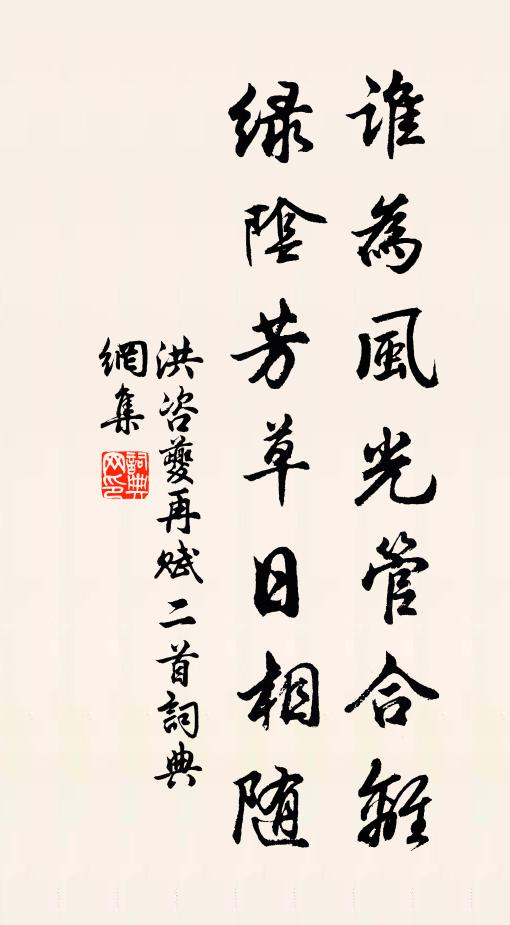 誰為風光管合離
緑陰芳草日相随
洪咨夔再赋二首詞典
網集
詞典
网印